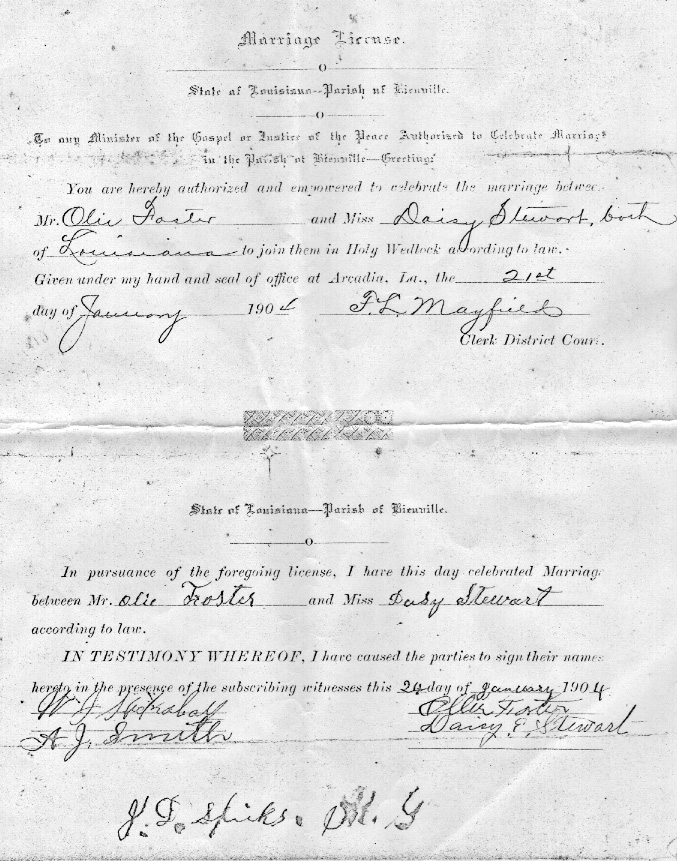 Marriage License.
State of Louisiana--Parish of Bienville.
To any Minister of the Gospel or Justice of the Peace Authorized to Celebrate Marriage
in the Parish of Bienville--Greeting:
You are hereby authorized and empowered to celebrate the marriage between
Mr. Olie Foster and Miss Daisy Stewart, both
of Louisiana to join them in Holy Wedlock according to law.
Given under my hand and seal of office at Arcadia, La., the 21st
day of January 1904 F. L. Mayfield
Clerk District Court.
State of Louisiana--Parish of Bienville.
In pursuance of the foregoing license, I have this day celebrated Marriage
between Mr. Olie Froster and Miss Dasy Stewart
according to law.
IN TESTIMONY WHEREOF, I have caused the parties to sign their names
hereto in the presence of the subscribing witnesses this 24 day of January 1904.
Ollie Foster
A J. Smith Daisy E. Stewart
J. D. Spicks. M. G